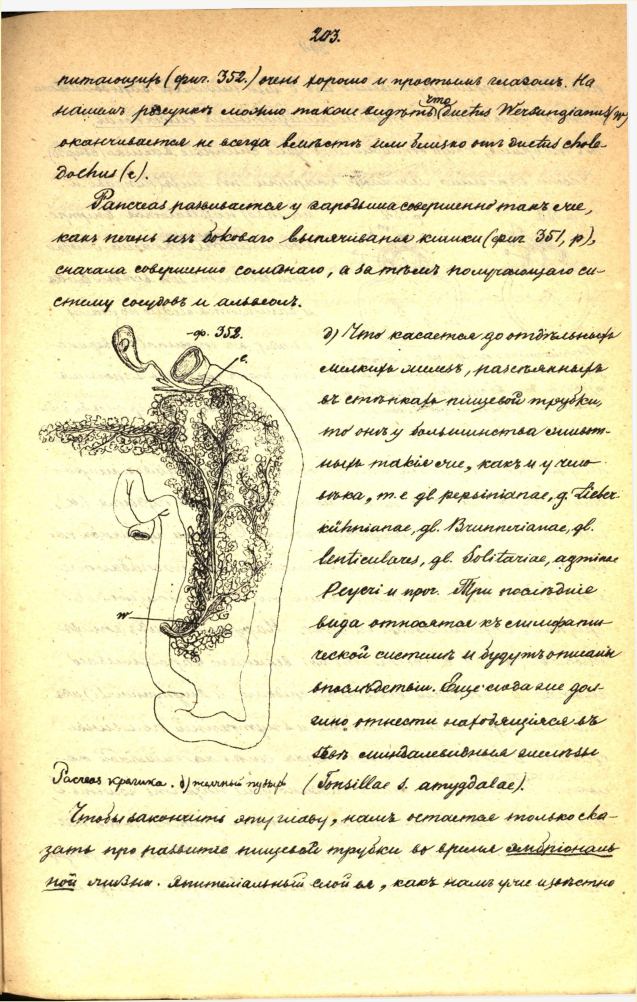 203.
питающихъ (фиг. 352.) очень хорошо и простымъ глазомъ. На
нашемъ рисункѣ можно также видѣть, что ductus Wirsungianus (w)
оканчивается не всегда вмѣстѣ или близко отъ ductus chole-
dochus (c).
Pancreas развивается у зародыша совершенно такъ же,
какъ печень изъ боковаго выпячиванія кишки (фиг 351, p),
сначала совершенно солиднаго, а затѣмъ получающаго си-
стему сосудовъ и альвеолъ.
ф. 352.
c.
w
д) Что касается до отдѣльныхъ
мелкихъ железъ, разсѣянныхъ
въ стѣнкахъ пищевой трубки,
то онѣ у большинства живот-
ныхъ такія же, какъ и у чело-
вѣка, т. е gl pepsinianae, g. Lieber-
kühnianae, gl. Brunnerianae, gl.
lenticulares, gl. Solitariae, agminae
Peyeri и проч. Три послѣдніе
вида относятся къ лимфати-
ческой системѣ и будутъ описаны
впослѣдствіи. Еще сюда же дол-
жно отнести находящіяся въ
миндалевидныя железы
(Tonsillae s. amygdalae).
Pacreas кролика. b) желчный пузырь
Чтобы закончить эту главу, намъ остается только ска-
зать про развитіе пищевой трубки во время эмбріональ
ной жизни. Эпителіальный слой ея, какъ намъ уже извѣстно